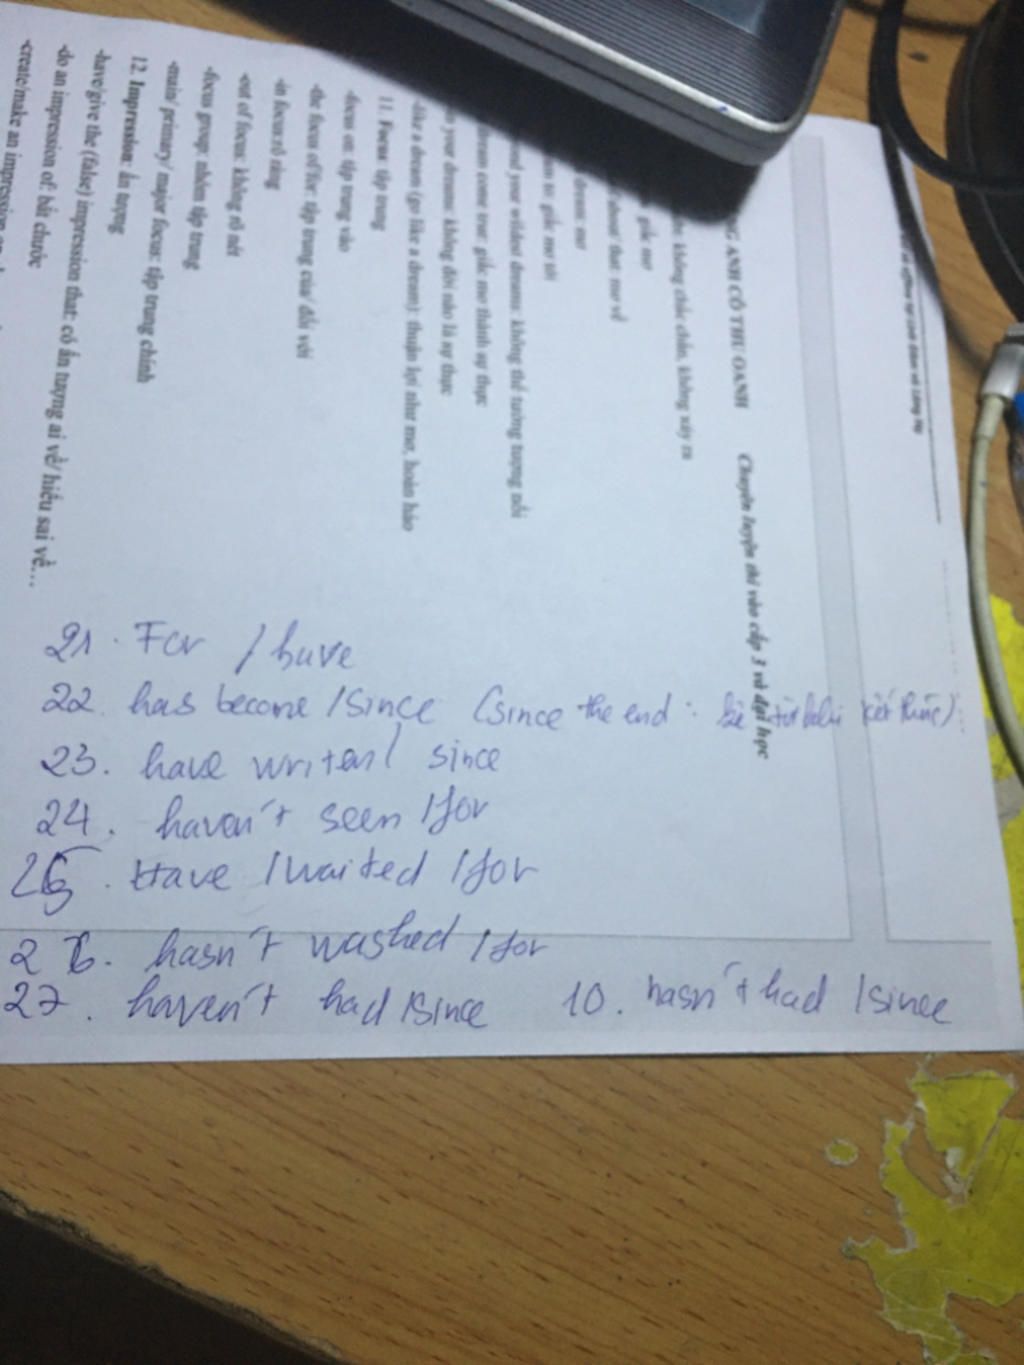 ANH CÔ THU OANH Chuyên luyện thi vào cấp 3 và đại học
không chắc chắn, không xảy ra
giấc mơ
about that: mơ về
dream mơ
to: giấc mơ tới
your wildest dreams: không thể tưởng tượng nổi
dream come true: giấc mơ thành sự thực
your dreams: không đời nào là sự thực
-like a dream (go like a dream): thuận lợi như mơ, hoàn hảo
11. Focus: tập trung
-focus on: tập trung vào
-the focus of/for: tập trung của/ đối với
-in focus: rõ ràng
-out of focus: không rõ nét
-focus group: nhóm tập trung
-main/ primary/ major focus: tập trung chính
12. Impression: ấn tượng
-have/give the (false) impression that: có ấn tượng ai về/ hiểu sai về...
-do an impression of: bắt chước
-create/make an impression on
21. For / have
22. has become / since (since the end: kết thúc)
23. have writen / since
24. haven't seen / for
25. Have / waited / for
26. hasn't washed / for
27. haven't had / since 10. hasn't had / since